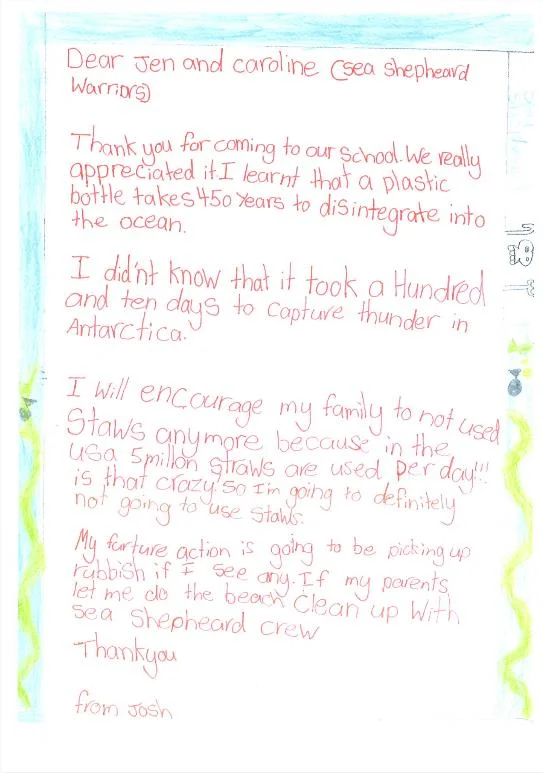 Dear Jen and caroline (sea shepheard
Warriors)
Thank you for coming to our school. We really
appreciated it. I learnt that a plastic
bottle takes 450 years to disintegrate into
the ocean.
I did'nt know that it took a Hundred
and ten days to capture thunder in
Antarctica.
I will encourage my family to not used
Staws anymore because in the
usa 5millon straws are used per day!!!
is that crazy. so I'm going to definitely
not going to use staws.
My furture action is going to be picking up
rubbish if I see any. If my parents
let me do the beach Clean up With
sea Shepheard crew
Thankyou
from Josh